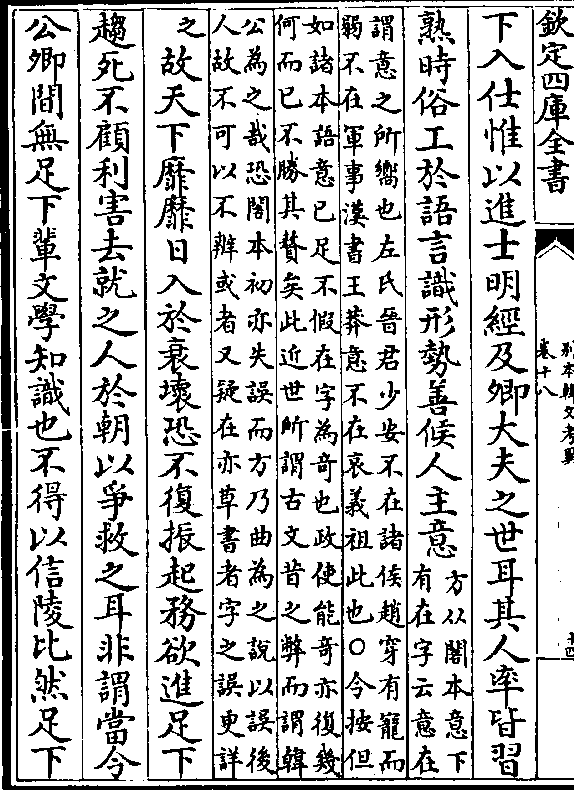 欽定四庫全書
別本韓文考異
卷十八
十四
下入仕惟以進士明經及卿大夫之世耳其人率皆習
熟時俗工於語言識形勢善候人主意
方从閣本意下
有在字云意在
謂意之所嚮也左氏晉君少安不在諸侯趙穿有寵而
弱不在軍事漢書王莽意不在哀義祖此也○今按但
如諸本語意已足不假在字為奇也政使能奇亦復幾
何而已不勝其贅矣此近世所謂古文昔之弊而謂韓
公為之哉恐閣本初亦失誤而方乃曲為之說以誤後
人故不可以不辨或者又疑在亦草書者字之誤更詳
之
故天下靡靡日入於衰壞恐不復振起務欲進足下
趨死不顧利害去就之人於朝以爭救之耳非謂當今
公卿間無足下輩文學知識也不得以信陵比然足下